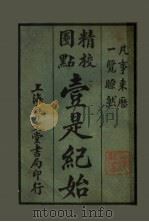 凡事來歷
一覽瞭然
精校
圈點
壹是紀始
上海
堂書局印行